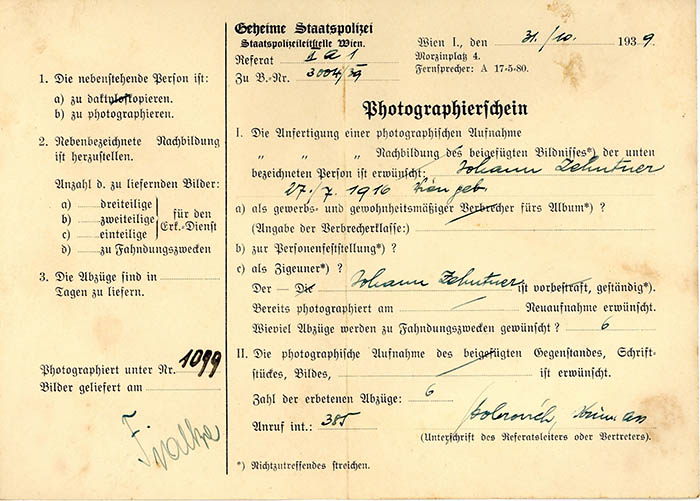 Geheime Staatspolizei
Staatspolizeileitstelle Wien.
Referat II A 1
Zu B.-Nr. 3004/39
Wien I., den 31./10. 1939.
Morzinplatz 4.
Fernsprecher: A 17-5-80.
1. Die nebenstehende Person ist:
a) zu daktyloskopieren.
b) zu photographieren.
2. Nebenbezeichnete Nachbildung
ist herzustellen.
Anzahl d. zu liefernden Bilder:
a) dreiteilige
b) zweiteilige
c) einteilige
für den
Erk.-Dienst
d) zu Fahndungszwecken
3. Die Abzüge sind in
Tagen zu liefern.
Photographiert unter Nr. 1099
Bilder geliefert am
Photographierschein
I. Die Anfertigung einer photographischen Aufnahme
„ „ „ Nachbildung des beigefügten Bildnisses*) der unten
bezeichneten Person ist erwünscht: Johann Zehntner
27./7. 1916 Wien geb
a) als gewerbs- und gewohnheitsmäßiger Verbrecher fürs Album*) ?
(Angabe der Verbrecherklasse:)
b) zur Personenfeststellung*) ?
c) als Zigeuner*) ?
Der – Die Johann Zehntner ist vorbestraft, geständig*).
Bereits photographiert am Neuaufnahme erwünscht.
Wieviel Abzüge werden zu Fahndungszwecken gewünscht ? 6
II. Die photographische Aufnahme des beigefügten Gegenstandes, Schrift-
stückes, Bildes, ist erwünscht.
Zahl der erbetenen Abzüge: 6
Anruf int.: 385
(Unterschrift des Referatsleiters oder Vertreters).
*) Nichtzutreffendes streichen.